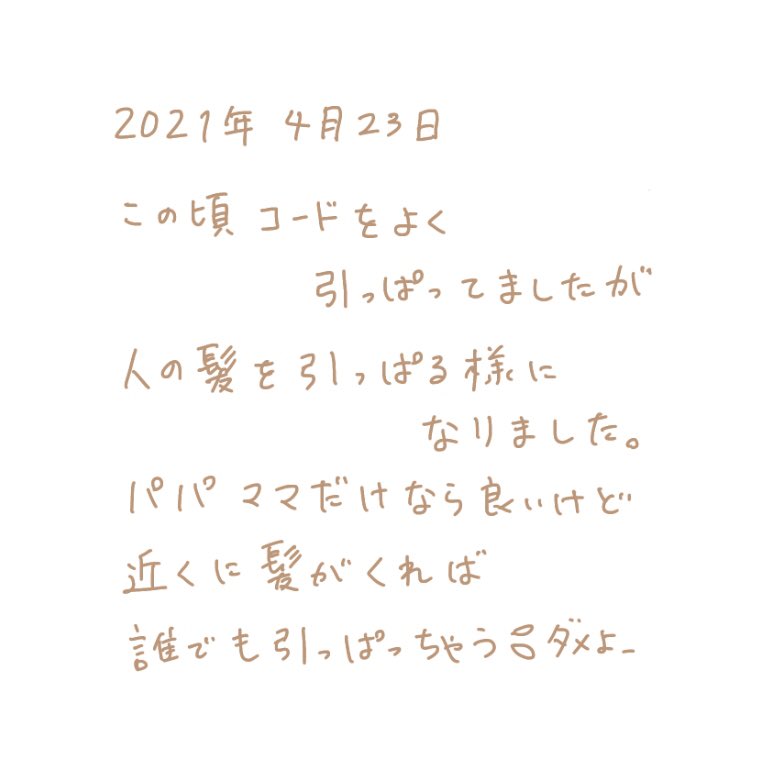 2021年 4月23日
この頃 コードをよく
引っぱってましたが
人の髪を引っぱる様に
なりました。
パパ ママだけなら良いけど
近くに髪がくれば
誰でも引っぱっちゃう ダメよー